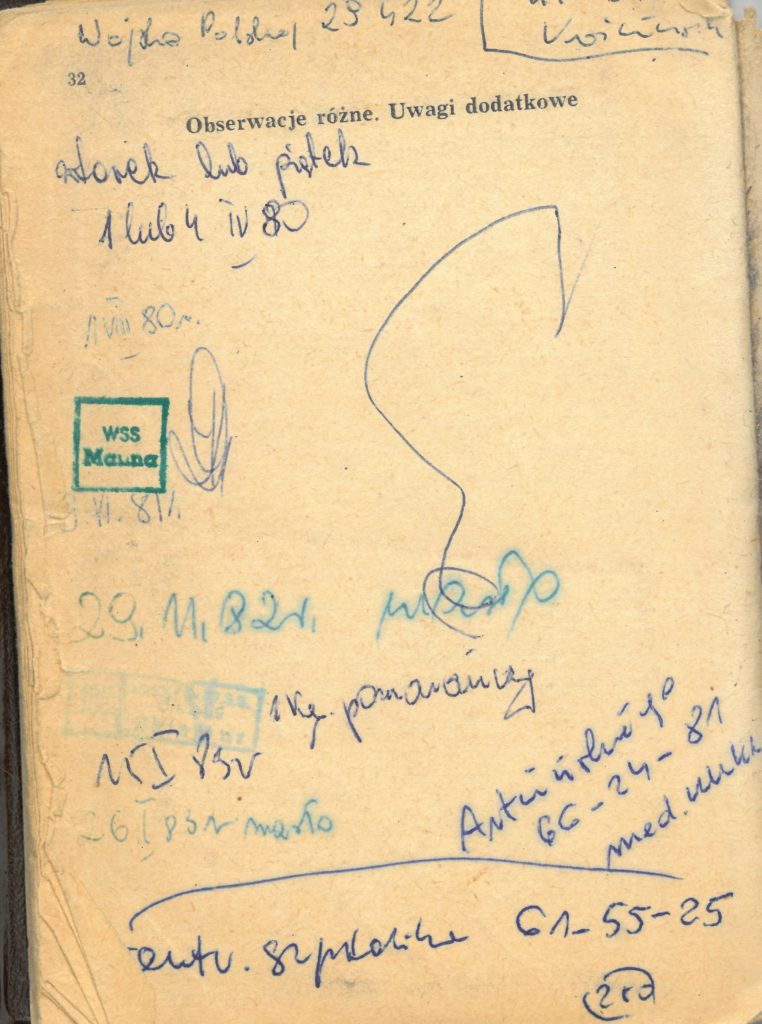 Wojska Polskiej 29 422
32
Obserwacje różne. Uwagi dodatkowe
wtorek lub piątek
1 lub 4 IV 80
1 VIII 80 r.
WSS
Manna
VI. 81 r.
29. 11. 82 r. masło
1 kg. pomarańczy
15 I 83 r
26 I 83 r masło
66-24-81
med.
centr. szpitalika 61-55-25